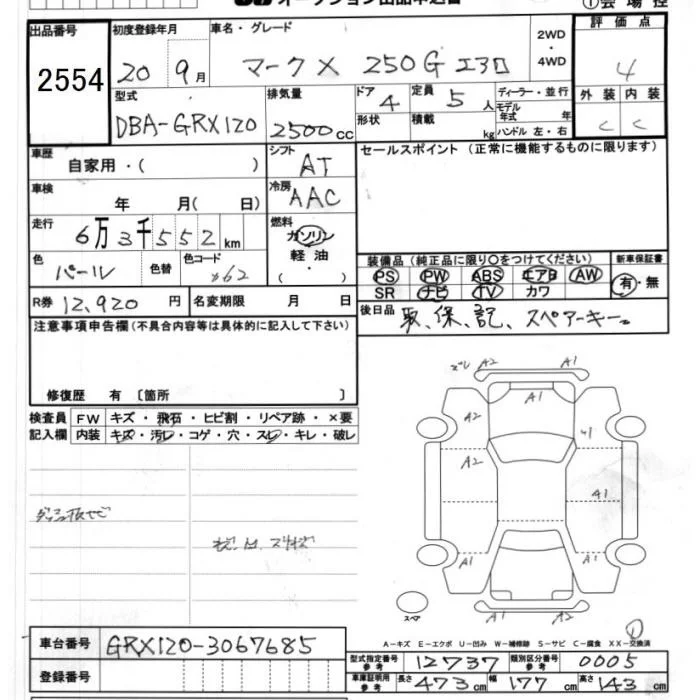 オークション出品申込書
①会場控
出品番号 2554
初度登録年月 20 9月
車名・グレード マークX 250G エアロ
2WD・4WD
評価点 4
型式 DBA-GRX120
排気量 2500cc
ドア 4 形状
定員 5人 積載 kg
ディーラー・並行
モデル年式 年
ハンドル 左・右
外装 内装
C C
車歴 自家用・( )
シフト AT
セールスポイント (正常に機能するものに限ります)
車検 年 月( 日)
冷房 AAC
走行 6万3千552km
燃料 ガソリン・軽油・( )
色 パール 色替 色コード 062
装備品(純正品に限り○をつけてください)
新車保証書
PS PW ABS エアB AW
有・無
SR ナビ TV カワ
R券 12,920円 名変期限 月 日
後日品 取、保、記、スペアーキー
注意事項申告欄(不具合内容等は具体的に記入して下さい)
修復歴 有 [箇所 ]
検査員記入欄
FW キズ・飛石・ヒビ割・リペア跡・×要
内装 キズ・汚レ・コゲ・穴・スレ・キレ・破レ
ズレ A2 A1
A1
A2
A2
A1
A1 A1
A2 A1
スペア
①
A-キズ E-エクボ U-凹み W-補修跡 S-サビ C-腐食 XX-交換済
車台番号 GRX120-3067685
型式指定番号参考 12737 類別区分番号参考 0005
登録番号
車庫証明用参考 長さ 473cm 幅 177cm 高さ 143cm